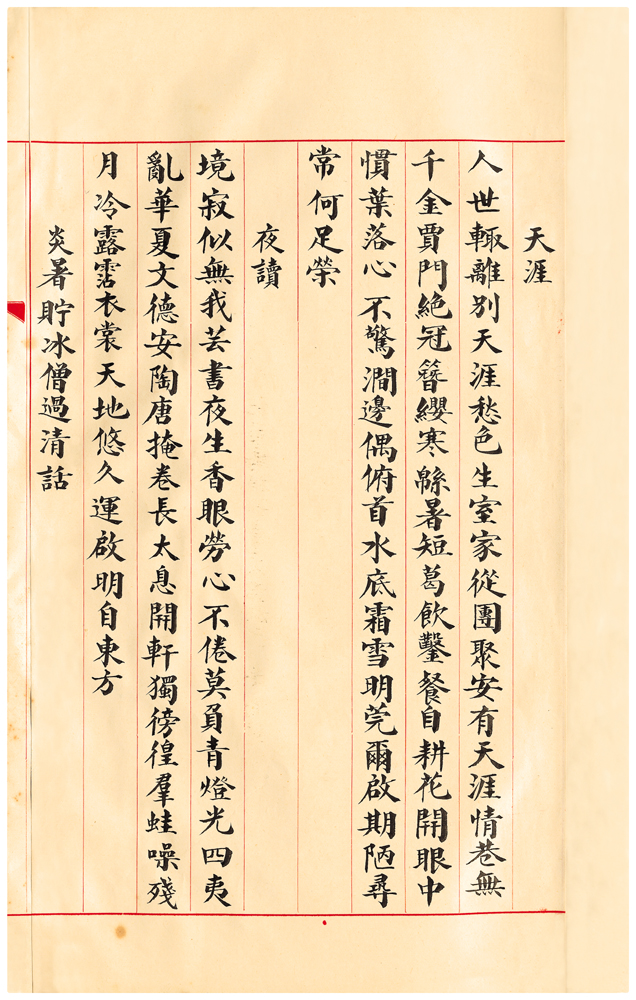 天涯
人世輙離別天涯愁色生室家從團聚安有天涯情巷無
千金賈門絕冠簪纓寒緜暑短葛飲鑿餐自耕花開眼中
慣葉落心不驚澗邊偶俯首水底霜雪明莞爾啟期陋尋
常何足榮
夜讀
境寂似無我芸書夜生香眼勞心不倦莫負青燈光四夷
亂華夏文德安陶唐掩卷長太息開軒獨徬徨羣蛙噪殘
月冷露霑衣裳天地悠久運啟明自東方
炎暑貯冰僧過清話